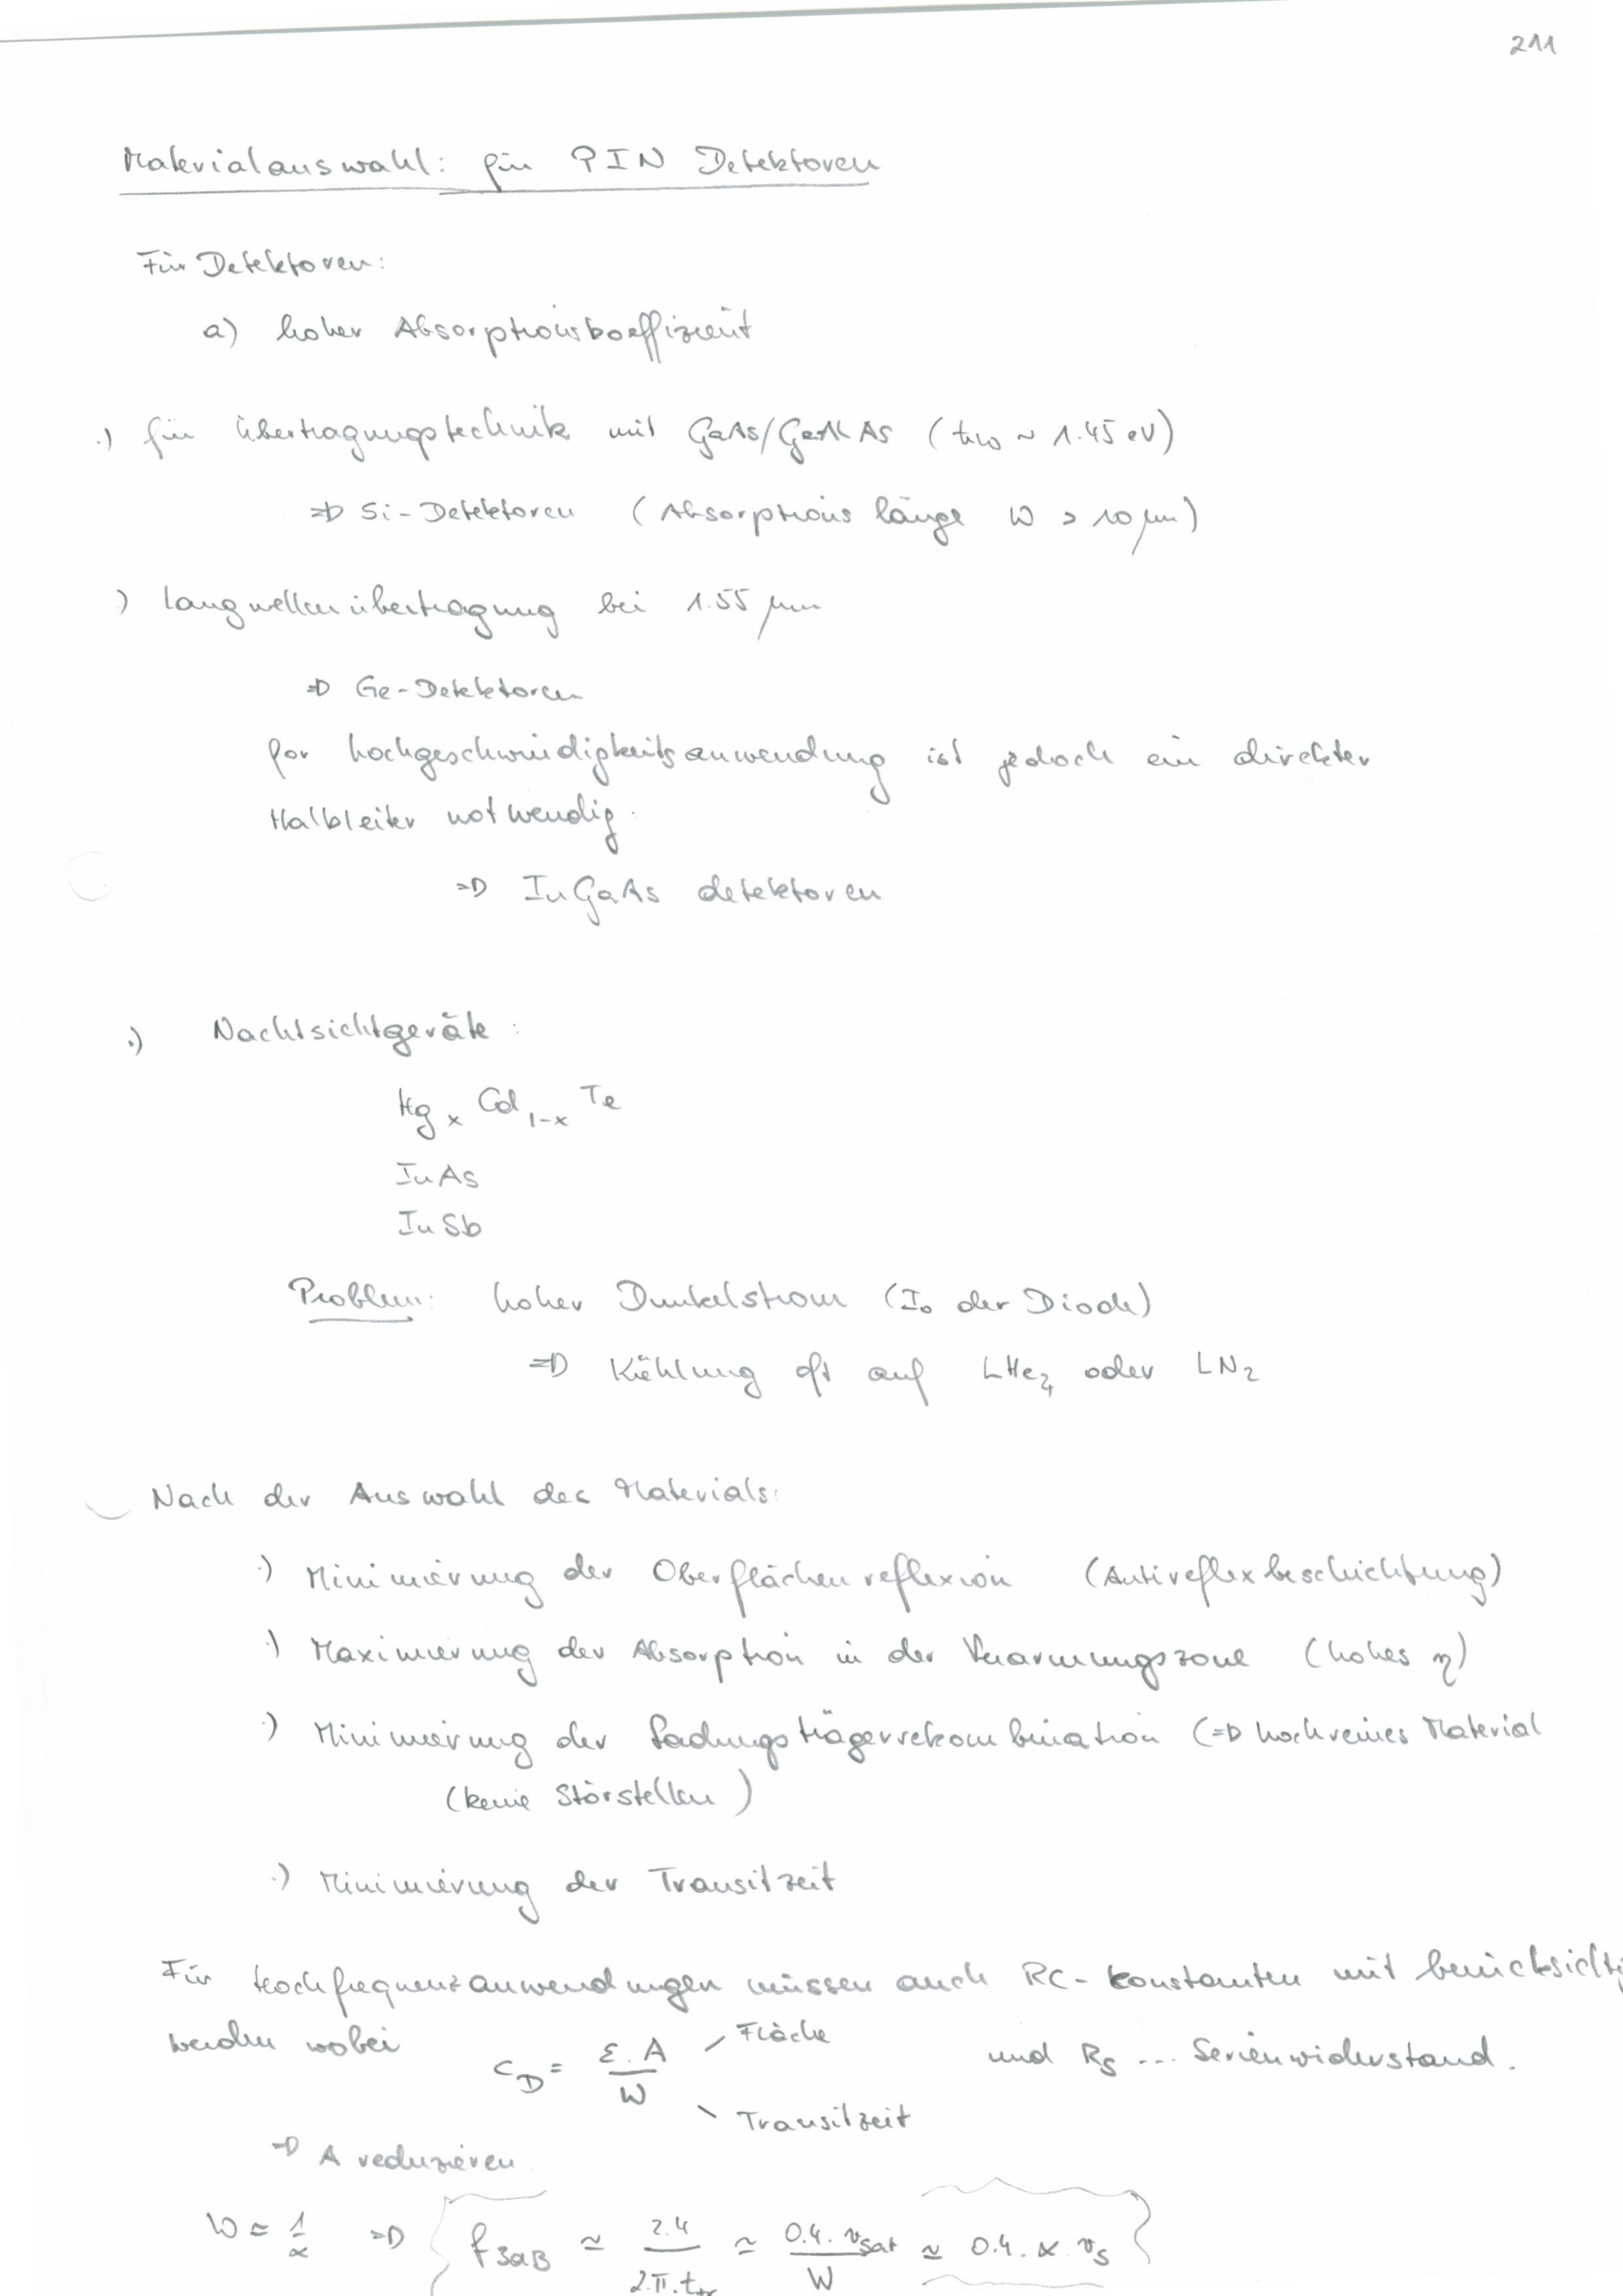 211
Materialauswahl: für PIN Detektoren
Für Detektoren:
a) hoher Absorptionskoeffizient
.) für Übertragungstechnik mit GaAs/GaAlAs (ħω ~ 1.45 eV)
⇒ Si-Detektoren (Absorptionslänge W > 10 µm)
.) Langwellenübertragung bei 1.55 µm
⇒ Ge-Detektoren
for hochgeschwindigkeitsanwendung ist jedoch ein direkter
Halbleiter notwendig.
⇒ InGaAs detektoren
.) Nachtsichtgeräte:
Hg x Cd 1-x Te
InAs
InSb
Problem: hoher Dunkelstrom (I₀ der Diode)
⇒ Kühlung oft auf LHe₄ oder LN₂
Nach der Auswahl des Materials:
.) Minimierung der Oberflächenreflexion (Antireflexbeschichtung)
.) Maximierung der Absorption in der Verarmungszone (hohes η)
.) Minimierung der Ladungsträgerrekombination (⇒ hochreines Material
(keine Störstellen)
.) Minimierung der Transitzeit
Für Hochfrequenzanwendungen müssen auch RC-Konstanten mit berücksichti
werden wobei C_D = ε.A / W Fläche und R_S ... Serienwiderstand.
Transitzeit
⇒ A reduzieren
W ≈ 1/α ⇒ { f_3dB ≃ 2.4 / 2.π.t_tr ≃ 0.4.v_sat / W ≃ 0.4.α.v_s }